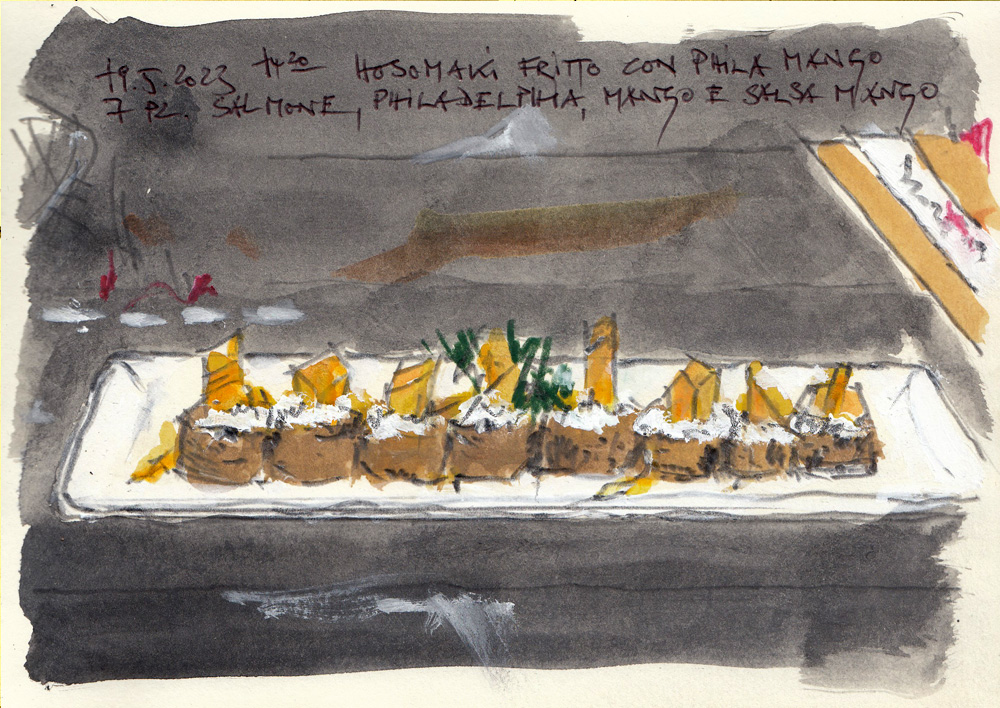 19.5.2023 14²⁰ HOSOMAKI FRITTO CON PHILA MANGO
7 PZ. SALMONE, PHILADELPHIA, MANGO E SALSA MANGO